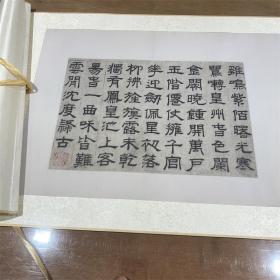 雞鳴紫陌曙光寒
鸎囀皇州春色闌
金闕曉鍾開萬戶
玉階僊仗擁千官
華迎劍佩星初落
柳拂旌旗露未乾
獨有鳳皇池上客
昜春一曲和皆難
雲間沈度古